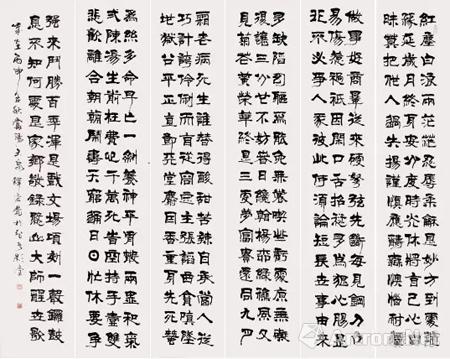 紅塵白浪兩茫茫忍辱柔和是妙方到處隨
緣延歲月終身安分度時光休將自己心田
昧莫把他人過失揚謹慎應酬無懊惱耐煩
做事好商量從來硬弩弦先斷每見鋼刀口
易傷惹禍只因閑口舌招愆多為狠心腸是
非不必爭人我彼此何須論短長世事由來
多缺陷幻軀焉得免無常吃些虧處原無礙
退讓三分也不妨春日才看楊柳綠秋風又
見菊花黃榮華終是三更夢富貴還同九月
霜老病死生誰替得酸甜苦辣自承當人從
巧計誇伶俐天自從容定主張諂曲貪嗔墮
地獄公平正直即天堂麝因香重身先死蠶
為絲多命早亡一劑養神平胃散兩盅和氣
二陳湯生前枉費心千萬死後空持手一雙
悲歡離合朝朝鬧壽夭窮通日日忙休要爭
強來鬥勝百年渾是戲文場頃刻一聲鑼鼓
息不知何處是家鄉錄憨山大師醒世歌
歲在丙申